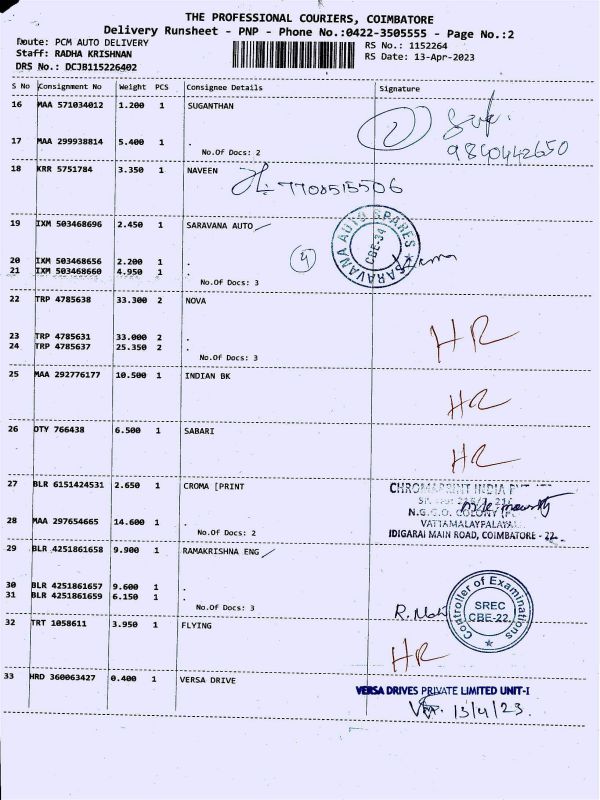 THE PROFESSIONAL COURIERS, COIMBATORE
Delivery Runsheet - PNP - Phone No.:0422-3505555 - Page No.:2
Route: PCM AUTO DELIVERY RS No.: 1152264
Staff: RADHA KRISHNAN RS Date: 13-Apr-2023
DRS No.: DCJB115226402
S No Consignment No Weight PCS Consignee Details Signature
16 MAA 571034012 1.200 1 SUGANTHAN
17 MAA 299938814 5.400 1 .
No.Of Docs: 2
2
9840442650
18 KRR 5751784 3.350 1 NAVEEN
7708515506
19 IXM 503468696 2.450 1 SARAVANA AUTO
20 IXM 503468656 2.200 1 .
21 IXM 503468660 4.950 1 .
No.Of Docs: 3
SARAVANA AUTO SPARES
CBE-34
22 TRP 4785638 33.300 2 NOVA
23 TRP 4785631 33.000 2 .
24 TRP 4785637 25.350 2 .
No.Of Docs: 3
HR
25 MAA 292776177 10.500 1 INDIAN BK
HR
26 DTY 766438 6.500 1 SABARI
HR
27 BLR 6151424531 2.650 1 CROMA [PRINT
28 MAA 297654665 14.600 1 .
No.Of Docs: 2
CHROMAPRINT INDIA
N.G.G.O. COLONY
VATTAMALAYPALAYA
IDIGARAI MAIN ROAD, COIMBATORE - 22.
29 BLR 4251861658 9.900 1 RAMAKRISHNA ENG
30 BLR 4251861657 9.600 1 .
31 BLR 4251861659 6.150 1 .
No.Of Docs: 3
Controller of Examinations
SREC
CBE-22.
32 TRT 1058611 3.950 1 FLYING
HR
33 HRD 360063427 0.400 1 VERSA DRIVE
VERSA DRIVES PRIVATE LIMITED UNIT-I
13/4/23.